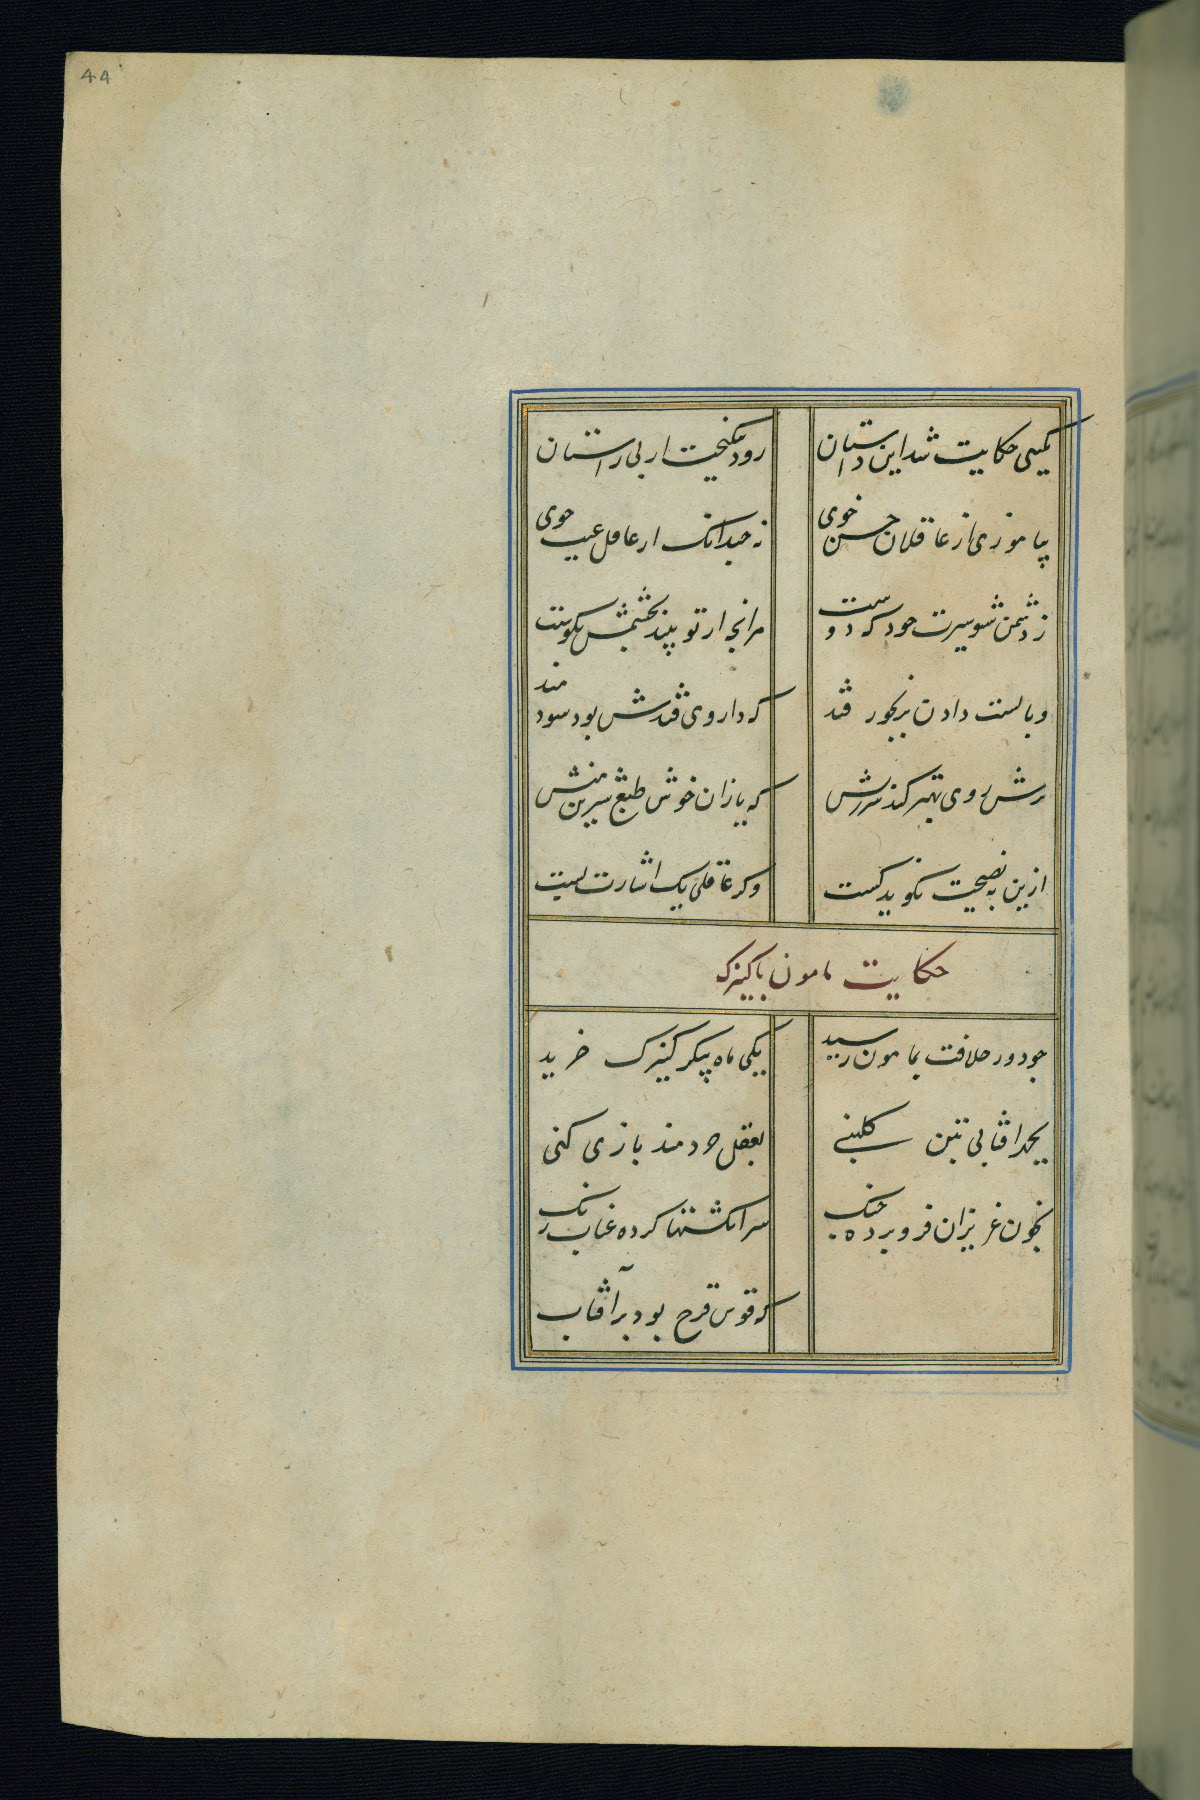 44
بگیتی حکایت شد این داستان
رود نیکبخت از پی راستان
بیاموزی از عاقلان حسن خوی
نه چندانک از عاقل عیب جوی
ز دشمن شنو سیرت خود که دوست
هر آنچه از تو بیند بچشمش نکوست
وبالست دادن برنجور قند
که داروی قندش بود سودمند
ترش روی بهتر کند سرزنش
که یاران خوش طبع شیرین منش
ازین به نصیحت نگوید کست
وگر عاقلی یک اشارت بست
حکایت مامون با کنیزک
چو دور خلافت بمامون رسید
یکی ماه پیکر کنیزک خرید
بچهر آفتابی بتن گلبنی
بعقل خردمند بازی کنی
بخون عزیزان فرو برده چنگ
سر انگشتها کرده عناب رنگ
که قوس قزح بود بر آفتاب